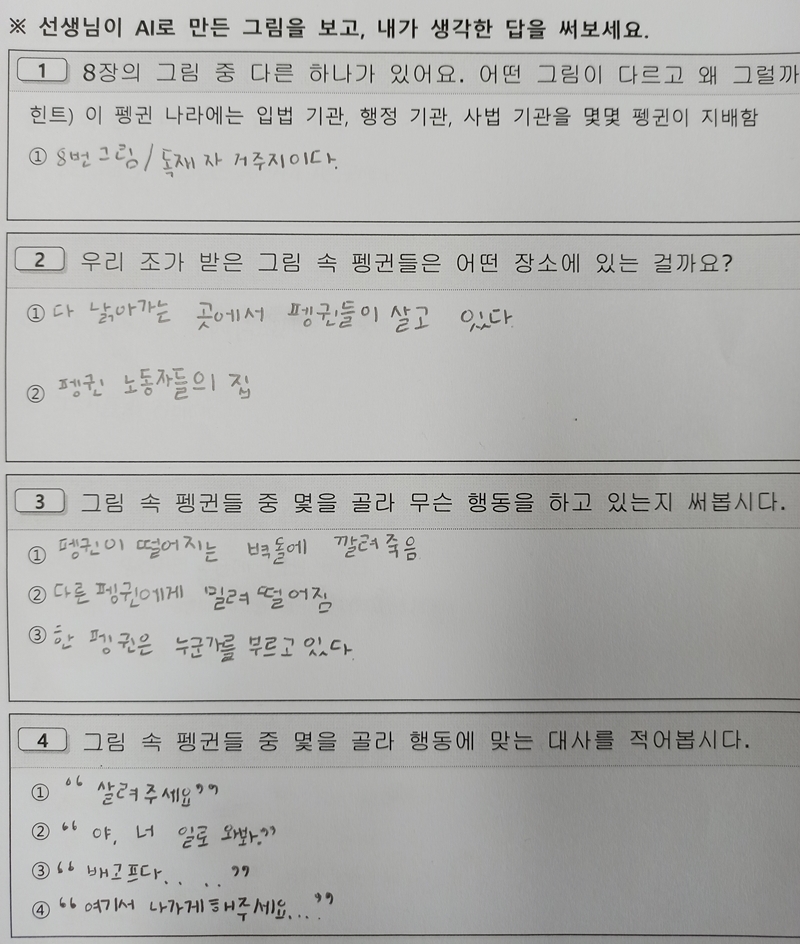 ※ 선생님이 AI로 만든 그림을 보고, 내가 생각한 답을 써보세요.
1 8장의 그림 중 다른 하나가 있어요. 어떤 그림이 다르고 왜 그럴까
힌트) 이 펭귄 나라에는 입법 기관, 행정 기관, 사법 기관을 몇몇 펭귄이 지배함
① 8번 그림 / 독재자 거주지이다.
2 우리 조가 받은 그림 속 펭귄들은 어떤 장소에 있는 걸까요?
① 다 낡아가는 곳에서 펭귄들이 살고 있다
② 펭귄 노동자들의 집
3 그림 속 펭귄들 중 몇을 골라 무슨 행동을 하고 있는지 써봅시다.
① 펭귄이 떨어지는 벽돌에 깔려죽음
② 다른 펭귄에게 밀려 떨어짐
③ 한 펭귄은 누군가를 부르고 있다
4 그림 속 펭귄들 중 몇을 골라 행동에 맞는 대사를 적어봅시다.
① “살려주세요”
② “야, 너 일로 와봐.”
③ “배고프다. . . .”
④ “여기서 나가게 해주세요....”